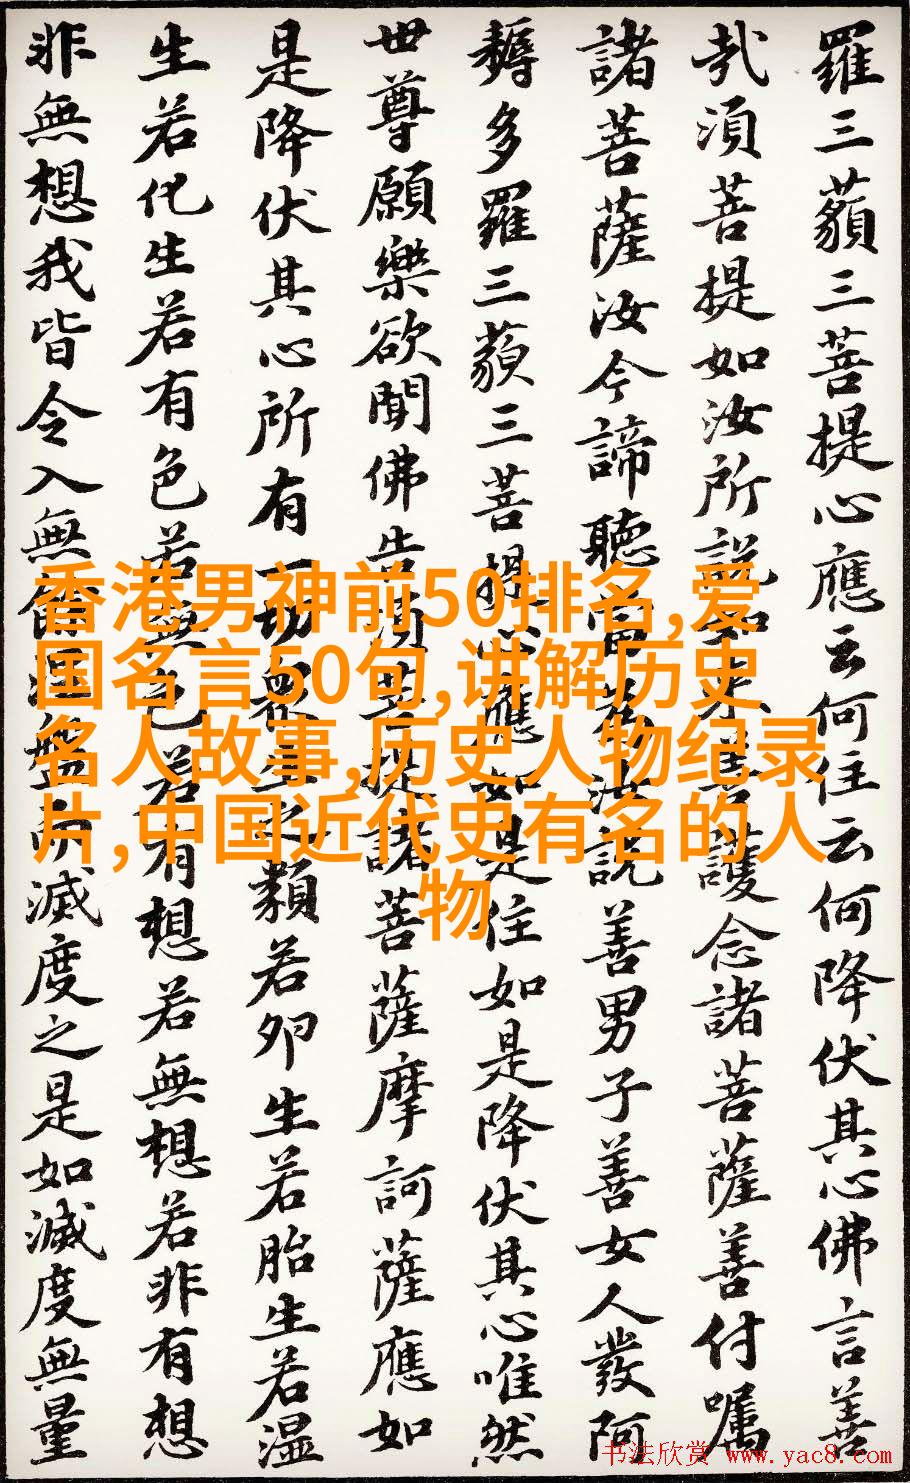 羅三藐三菩提心應云何住云何降伏其心佛言善
哉須菩提如汝所說如來善護念諸菩薩善付囑
諸菩薩汝今諦聽當為汝說善男子善女人發阿
耨多羅三藐三菩提心應如是住如是降伏其心唯然
世尊願樂欲聞佛告須菩提諸菩薩摩訶薩應如
是降伏其心所有一切眾生之類若卵生若胎生若湿
生若化生若有色若無色若有想若無想若非有想
非無想我皆令入無餘涅槃而滅度之是如滅度無量
香港男神前50排名,爱
国名言50句,讲解历史
名人故事,历史人物纪录
片,中国近代史有名的人
物
书法欣赏 www.yac8.com